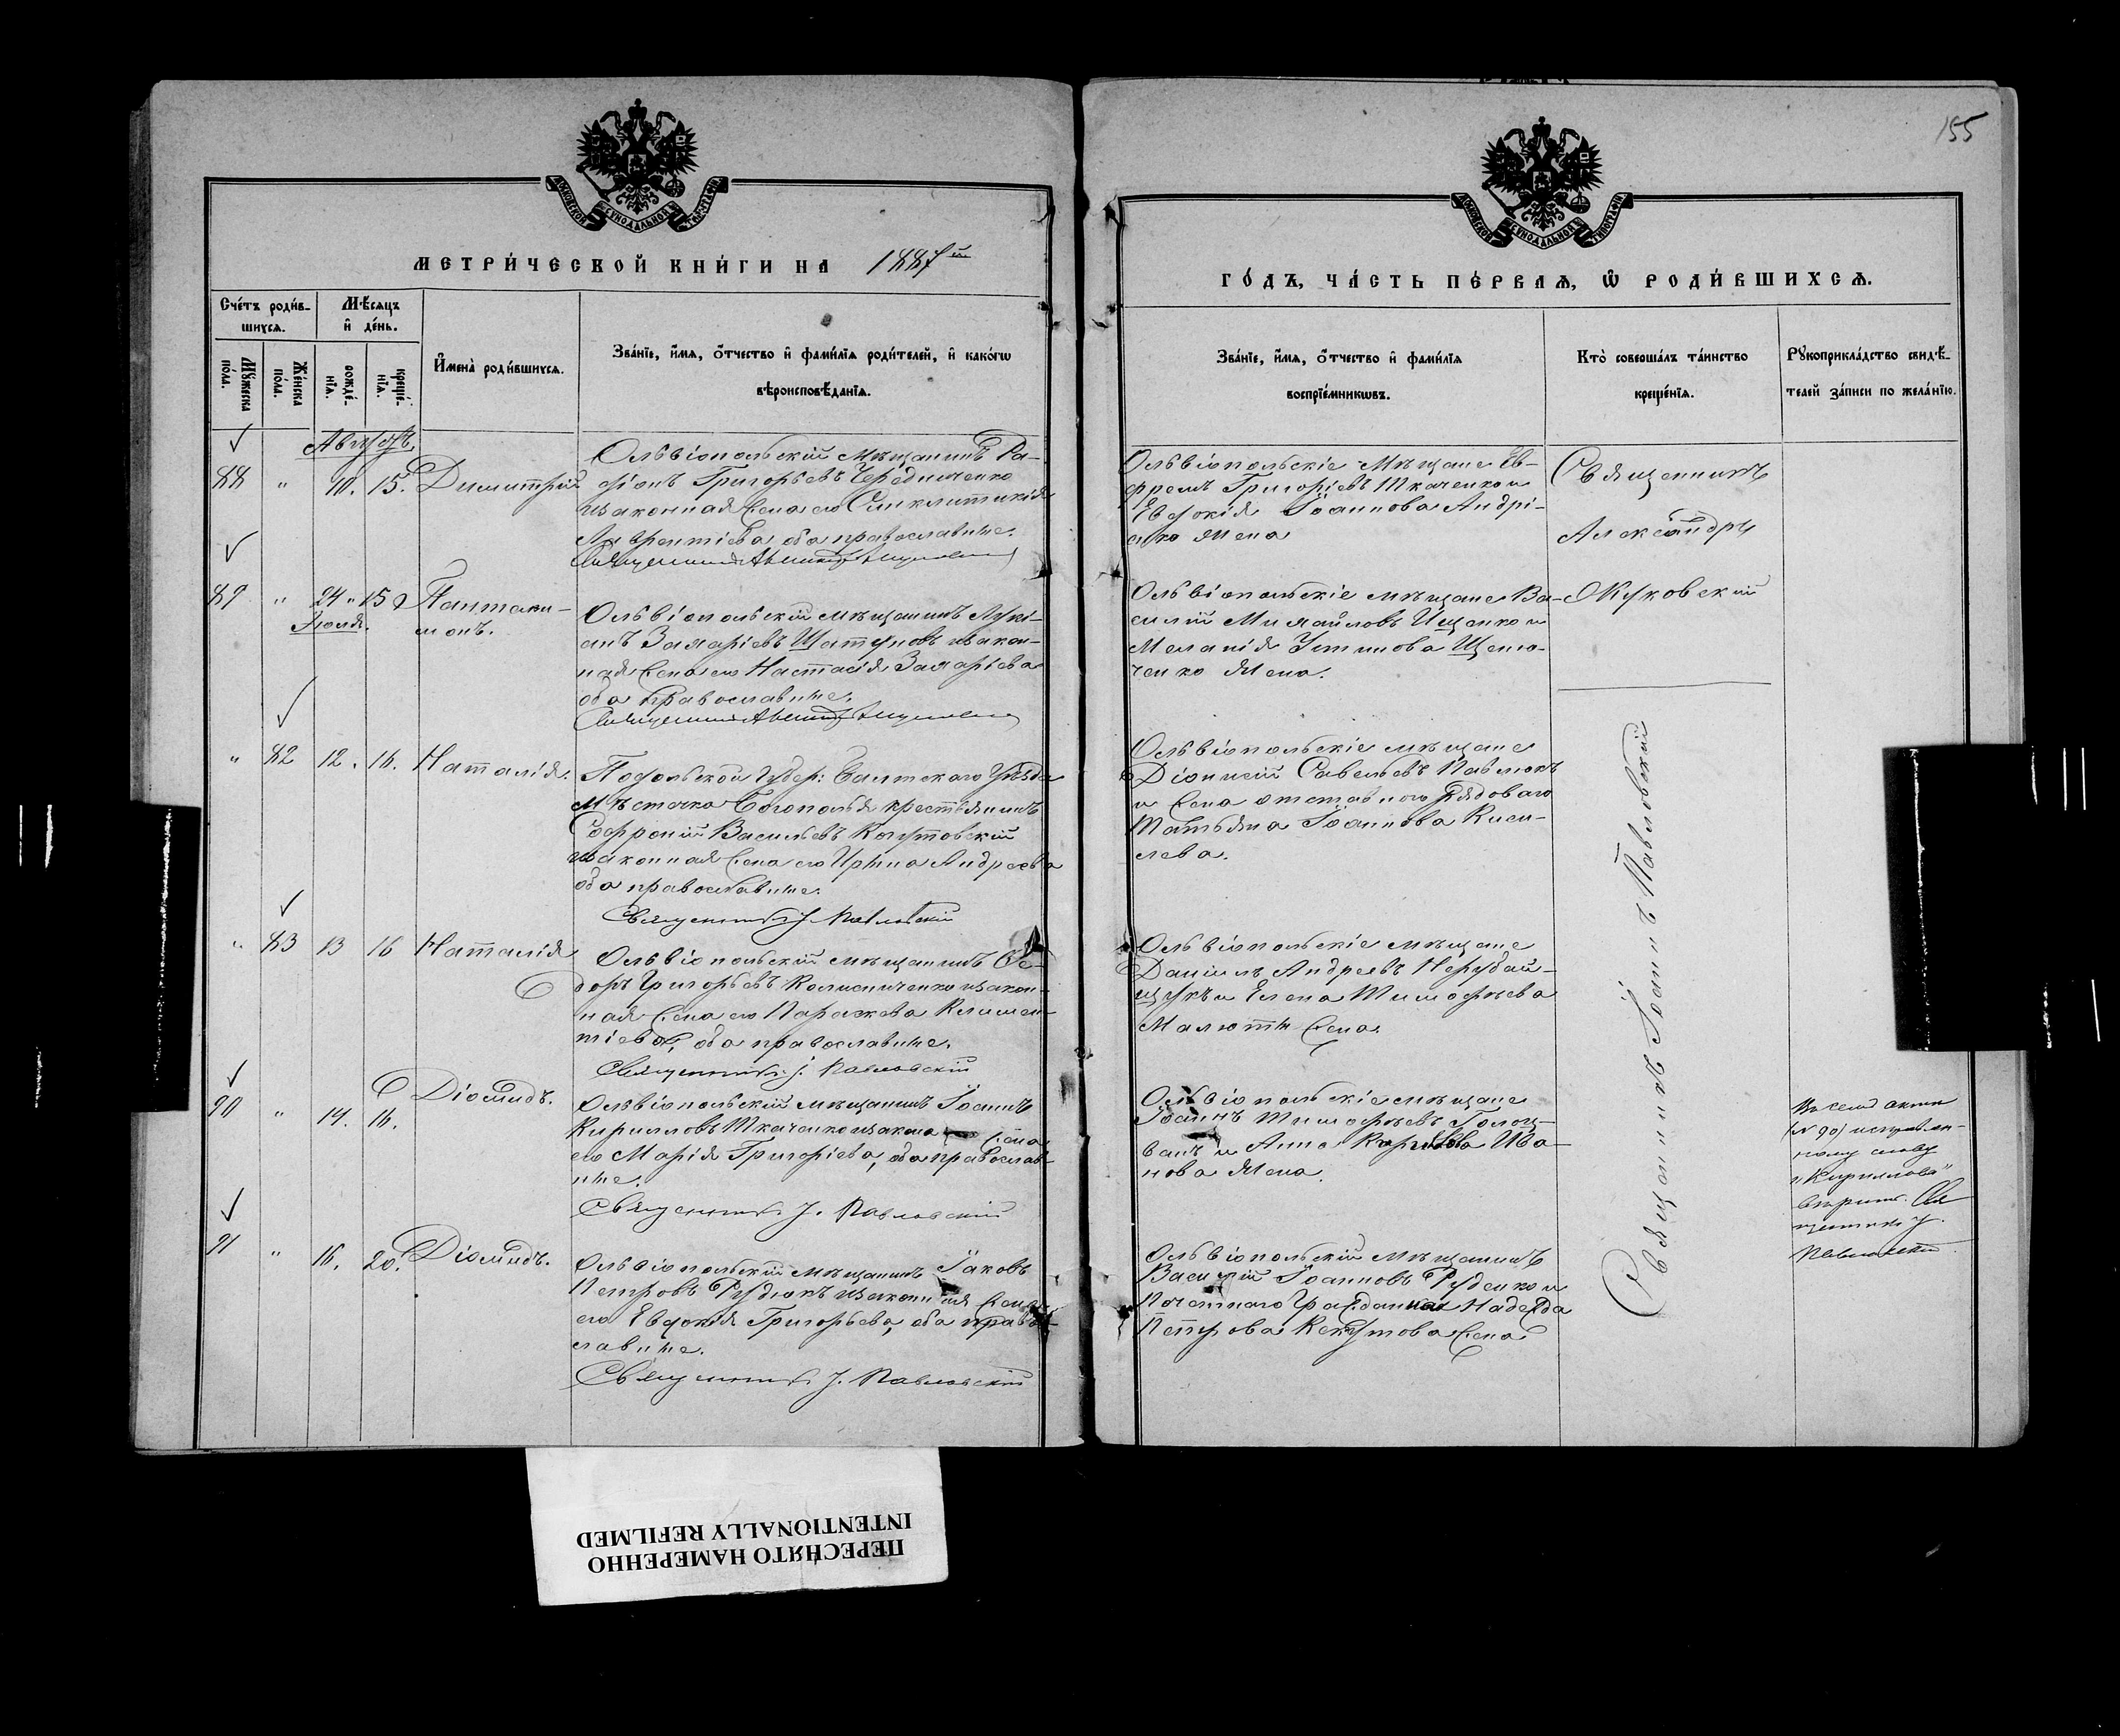 155
МОСКОВСКОЙ СУНОДАЛЬНОЙ ТИПОГРАФІИ
МОСКОВСКОЙ СУНОДАЛЬНОЙ ТИПОГРАФІИ
МЕТРИ́ЧЕСКОЙ КНИ́ГИ НА 1887й
ГО́ДЪ, ЧА́СТЬ ПЕ́РВАѦ, Ѡ҆ РОДИ́ВШИХСѦ.
Сче́тъ роди́в-
шихсѧ.
Мѣ́сѧцъ
и҆ де́нь.
Мꙋ́жеска по́ла.
Же́нска по́ла.
рожде́-
нїѧ.
креще́-
нїѧ.
И҆мена̀ роди́вшихсѧ.
Зва́нїе, и҆́мѧ, ѻ҆́тчество и҆ фами́лїѧ роди́телей, и҆ како́гѡ
вѣроисповѣ́данїѧ.
Зва́нїе, и҆́мѧ, ѻ҆́тчество и҆ фами́лїѧ
воспрїе́мникѡвъ.
Кто̀ соверша́лъ та́инство
креще́нїѧ.
Рꙋкоприкла́дство свидѣ́-
телей за́писи по жела́нїю.
Августъ.
88 " 10. 15. Димитрій
Ольвіопольскій мѣщанинъ Ра-
фіонъ Григорьевъ Чередниченко
изаконная жена его Синклитикія
Лаврентіева оба православные.
Ольвіопольскіе мѣщане Ев-
фремъ Григоріевъ Ткаченко и
Евдокія Іоаннова Андрі-
енко жена
Священникъ
Александръ
Жуковскій
89 " 24 " 15 Пантелеи-
Іюля. монъ.
Ольвіопольскій мѣщанинъ Лукі-
анъ Захаріевъ Шатуновъ изакон-
ная жена его Настасія Захарьева
оба православные.
Ольвіопольскіе мѣщане Ва-
силій Михайловъ Ищенко и
Меланія Устинова Щено-
ченко жена.
" 82 12. 16. Наталія.
Подольской Губер: Балтскаго Уѣзда
Мѣстечка Богополья крестьянинъ
Софроній Васильевъ Когутовскій
изаконная жена его Ирина Андреева
оба православные.
Священникъ І. Павловскій
Ольвіопольскіе мѣщане
Діонисій Савельевъ Павлюкъ
и жена отставного рядоваго
Татьяна Іоаннова Кисе-
лева.
Священникъ Іоаннъ Павловскій
" 83 13 16 Наталія
Ольвіопольскій мѣщанинъ Ѳе-
доръ Григорьевъ Колисниченко изакон-
ная жена его Параскева Климен-
тіева, оба православные.
Священникъ І. Павловскій
Ольвіопольскіе мѣщане
Даніилъ Андреевъ Нерубай-
щукъ и Елена Тимофѣева
Малюты жена
90 " 14. 16. Діомидъ.
Ольвіопольскій мѣщанинъ Іоаннъ
Кирилловъ Ткаченко изакона жена
его Марія Григоріева, оба православ-
ные.
Священникъ І. Павловскій
Ольвіопольскіе мѣщане
Іоаннъ Тимофѣевъ Голоц-
ванъ и Анна Кирилова Ива-
нова жена.
Въ семъ актѣ
(№ 90) исправлен-
ному слову
"Кириллова"
вѣрить. Свя
щенникъ І.
Павловскій.
91 " 16. 20. Діомидъ.
Ольвіопольскій мѣщанинъ Іаковъ
Петровъ Рудюкъ изаконная жена
его Евдокія Григорьева, оба право-
славные.
Священникъ І. Павловскій
Ольвіопольскій мѣщанинъ
Василій Іоанновъ Руденко и
Почетнаго Гражданина Надежда
Петрова Кекутова жена
ПЕРЕСНЯТО НАМЕРЕННО
INTENTIONALLY REFILMED